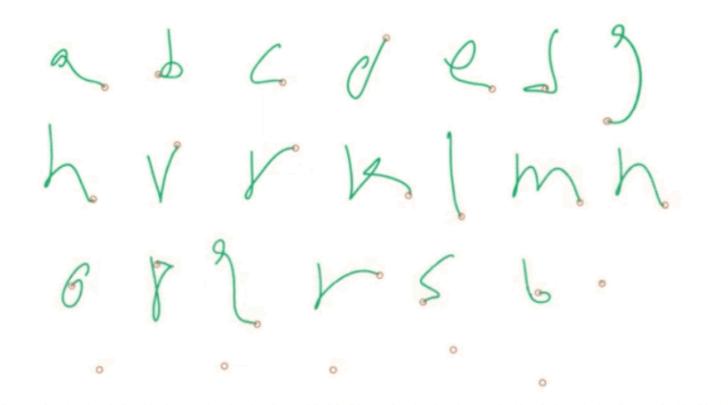 a b c d e g
h v r k l m n
o p q r s b